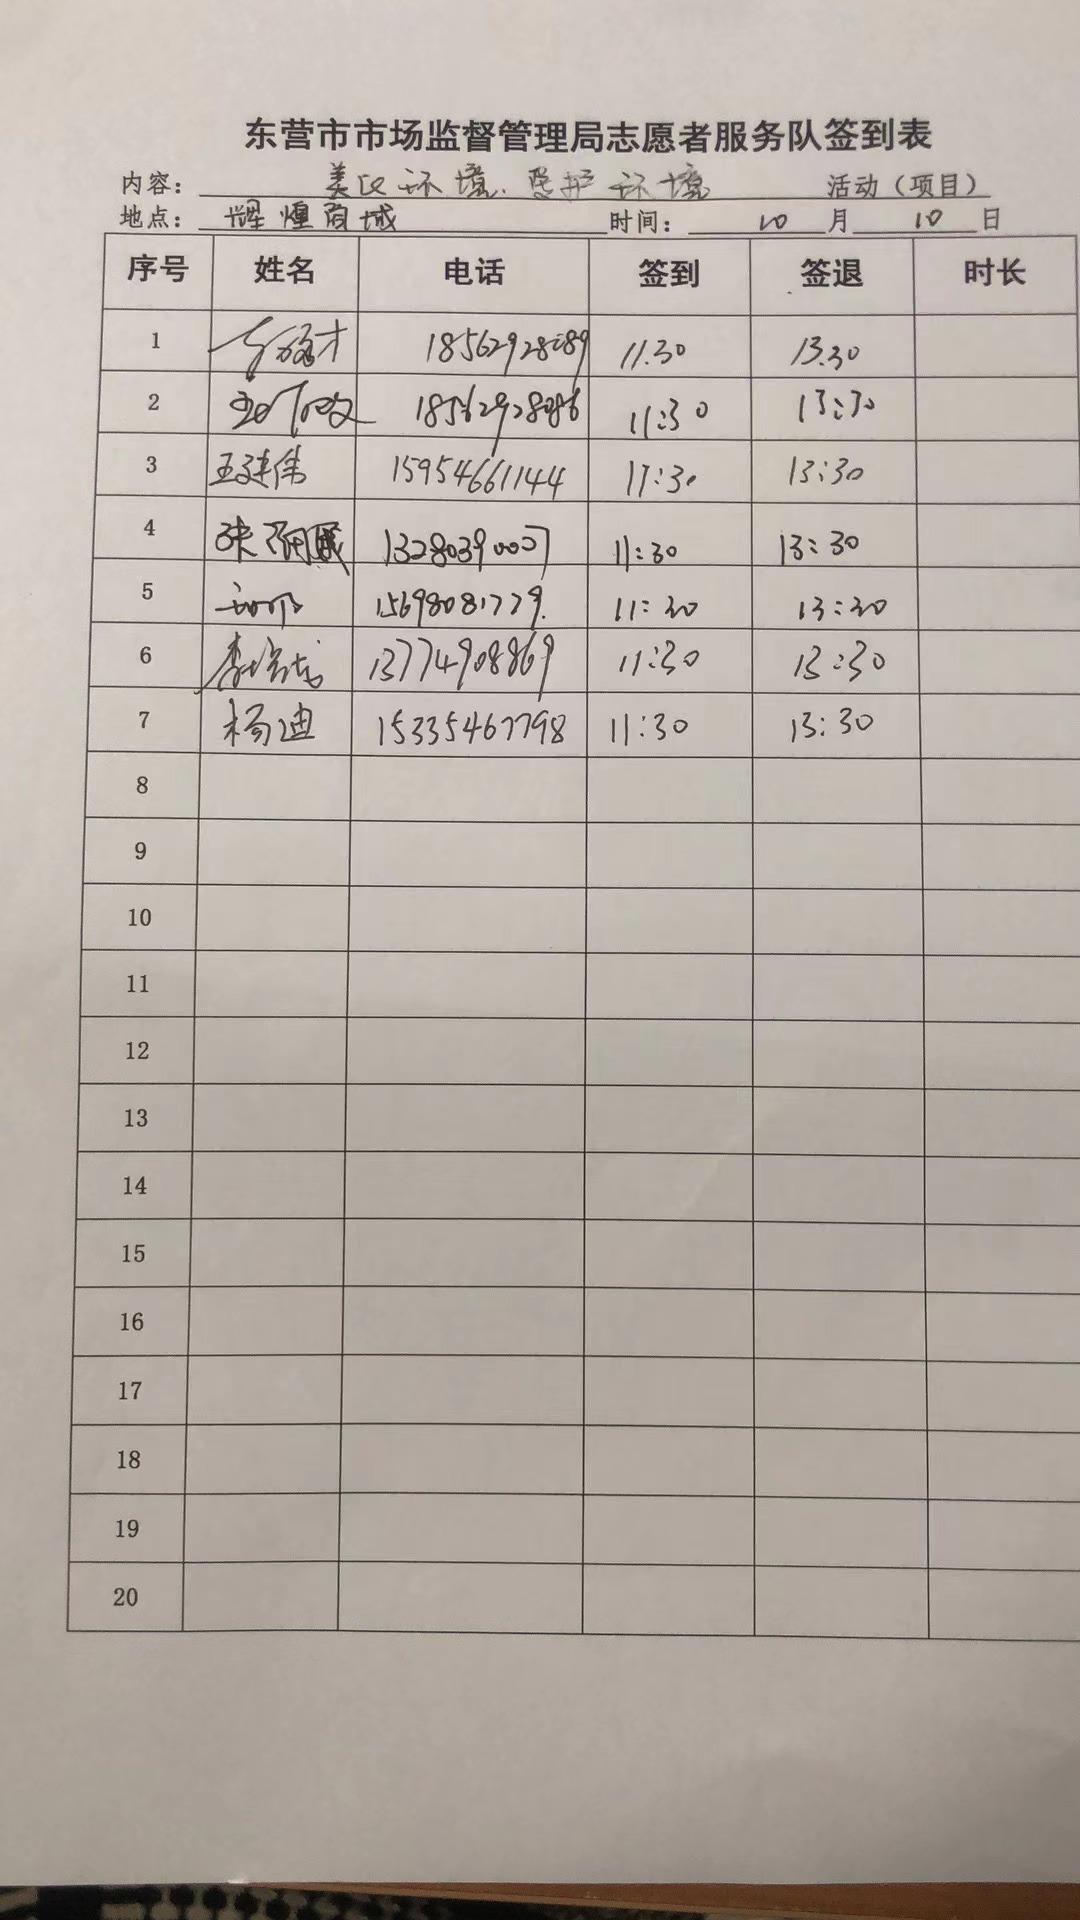 东营市市场监督管理局志愿者服务队签到表
内容： 美化环境、爱护环境 活动（项目）
地点： 辉煌商城 时间： 10 月 10 日
序号 姓名 电话 签到 签退 时长
1 11.30 13.30
2 18562928086 11:30 13:30
3 15954661144 11:30 13:30
4 13280390007 11:30 13:30
5 15698081779. 11:30 13:30
6 13774908869 11:30 13:30
7 杨迪 15335467798 11:30 13:30
8
9
10
11
12
13
14
15
16
17
18
19
20